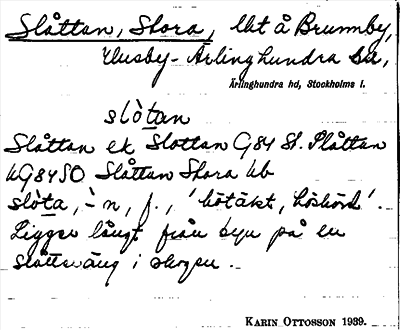 Slåttan, Stora, lht å Brunnby,
Husby-Ärlinghundra sn,
Ärlinghundra hd, Stockholms l.
slò̀tan
Slåttan ek Slottan G84 St. Plåttan
UG84SO Slåttan Stora hb
slòta, -̀n, f., 'hötäkt, höskörd'.
Ligger långt från byn på en
slåttesäng i skogen.
KARIN OTTOSSON 1939.